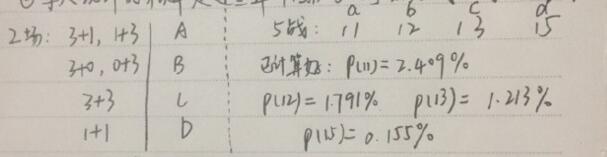 a b c d
2场: 3+1, 1+3 | A 5战: 11 12 13 15
3+0, 0+3 | B 已计算好: P(11)=2.409%
3+3 | C P(12)=1.791% P(13)=1.213%
1+1 | D P(15)=0.155%